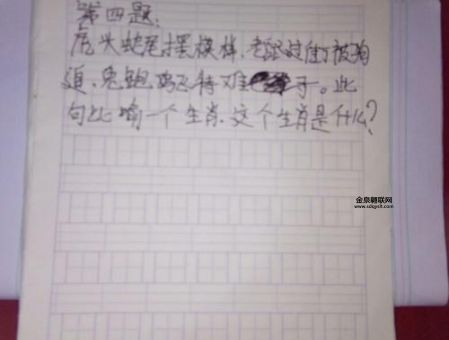 第四题:
虎头蛇尾摆模样,老鼠过街被狗
追,兔跑鸡飞待难于。此
句比喻一个生肖,这个生肖是什么?
金泉翱联网
www.sdqyslt.com